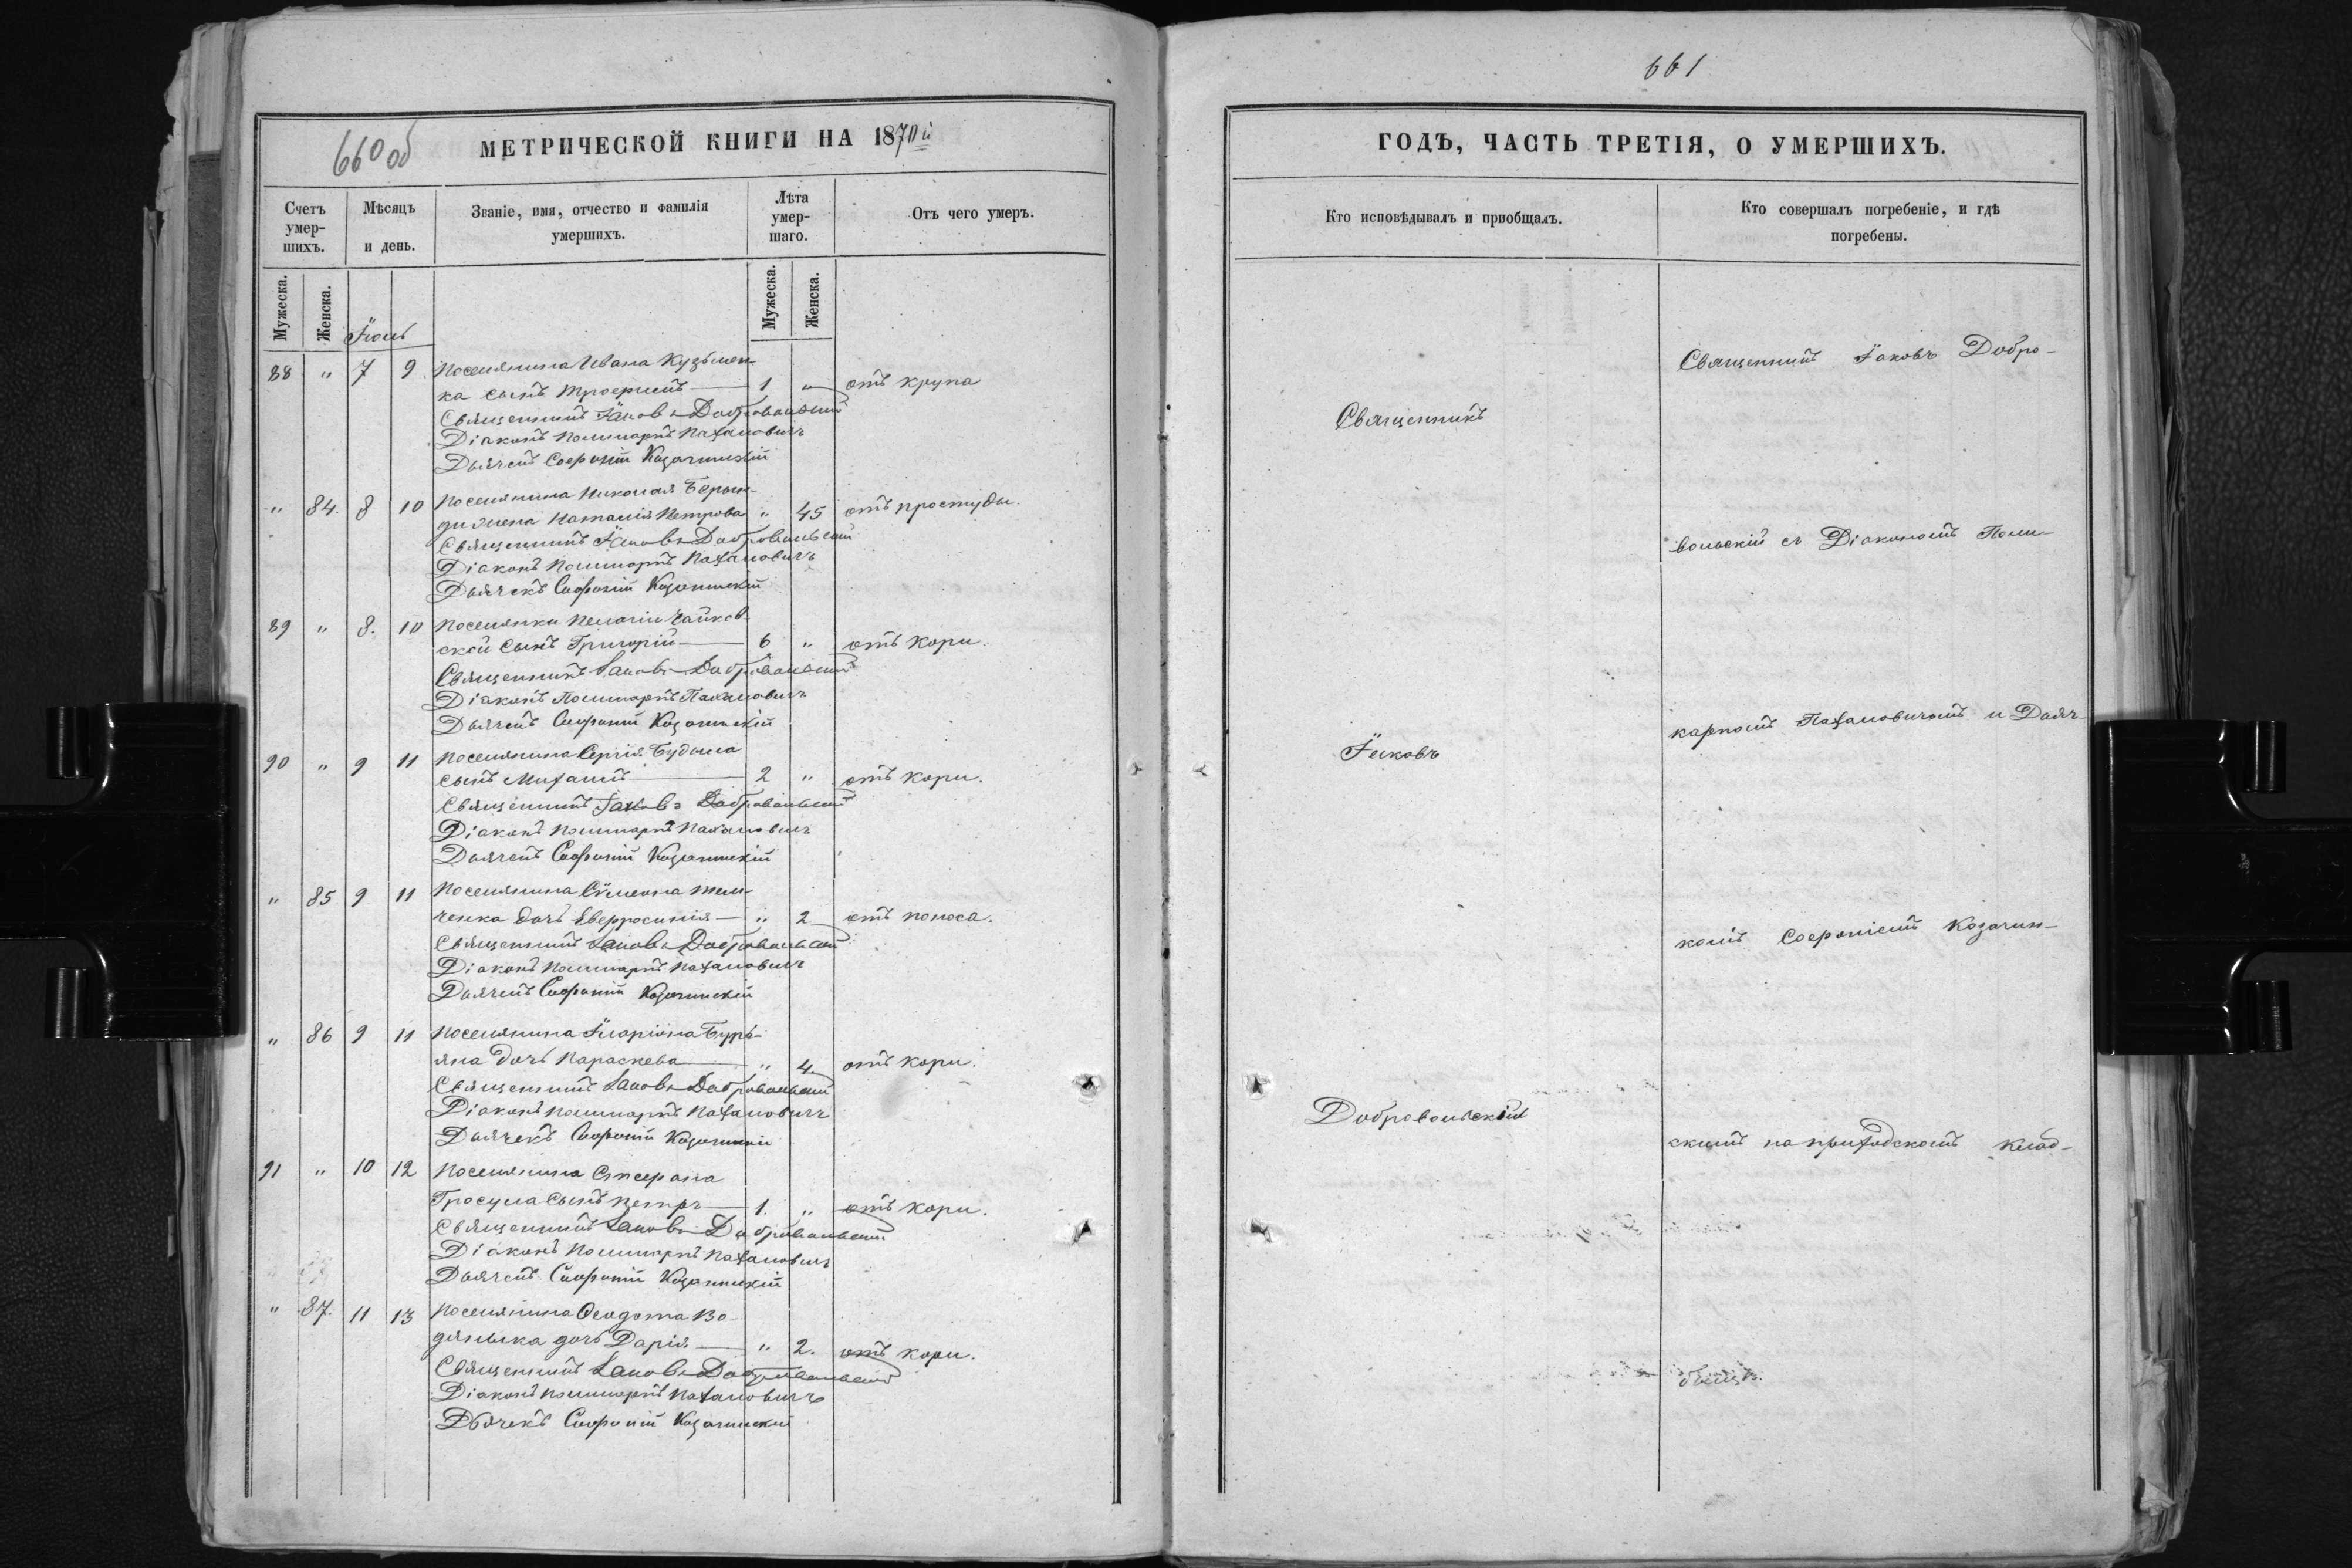 660 об
МЕТРИЧЕСКОЙ КНИГИ НА 1870й
Счетъ умер-шихъ.
Мѣсяцъ и день.
Званіе, имя, отчество и фамилія умершихъ.
Лѣта умер-шаго.
Отъ чего умеръ.
Мужеска. Женска. Мужеска. Женска.
88 " 7 9 Поселянина Ивана Кузьмен-
ка сынъ Трофимъ 1 " отъ крупа
Священникъ Іаковъ Добровольскій
Діаконъ Поликарпъ Паханович
Дьячекъ Софроній Козачинскій
" 84. 8 10 Поселянина Николая
жена Наталія Петрова " 45 отъ простуды.
Священникъ Іаковъ Добровольскій
Діаконъ Поликарпъ Пахановичъ
Дьячекъ Софроній Козачинскій
89 " 8. 10 Поселянки Пелагіи Чайков-
ской сынъ Григорій 6 " отъ кори.
Священникъ Іаковъ Добровольскій
Діаконъ Поликарпъ Пахановичъ
Дьячекъ Софроній Козачинскій
90 " 9 11 Поселянина Сергія
сынъ Михаилъ 2 " отъ кори.
Священникъ Іаковъ Добровольскій
Діаконъ Поликарпъ Пахановичъ
Дьячекъ Софроній Козачинскій
" 85 9 11 Поселянина Сѵмеона
ченка дочь Евфросинія " 2 отъ поноса.
Священникъ Іаковъ Добровольскій
Діаконъ Поликарпъ Пахановичъ
Дьячекъ Софроній Козачинскій
" 86 9 11 Поселянина Иларіона Бурь-
яна дочь Параскева " 4. отъ кори.
Священникъ Іаковъ Добровольскій
Діаконъ Поликарпъ Пахановичъ
Дьячекъ Софроній Козачинскій
91 " 10 12 Поселянина Стефана
Гросула сынъ Петръ 1. " отъ кори.
Священникъ Іаковъ Добровольскій
Діаконъ Поликарпъ Пахановичъ
Дьячекъ Софроній Козачинскій
" 87. 11 13 Поселянина Ѳеодота Во-
дяныка дочь Дарія " 2. отъ кори.
Священникъ Іаковъ Добровольскій
Діаконъ Поликарпъ Пахановичъ
Дьячекъ Софроній Козачинскій
661
ГОДЪ, ЧАСТЬ ТРЕТІЯ, О УМЕРШИХЪ.
Кто исповѣдывалъ и пріобщалъ.
Кто совершалъ погребеніе, и гдѣ погребены.
Священникъ
Іаковъ
Добровольскій
Священникъ Іаковъ Добро-
вольскій съ Діакономъ Поли-
карпомъ Пахановичомъ и Дьяч
комъ Софроніемъ Козачин-
скимъ на приходскомъ клад-
бищѣ.